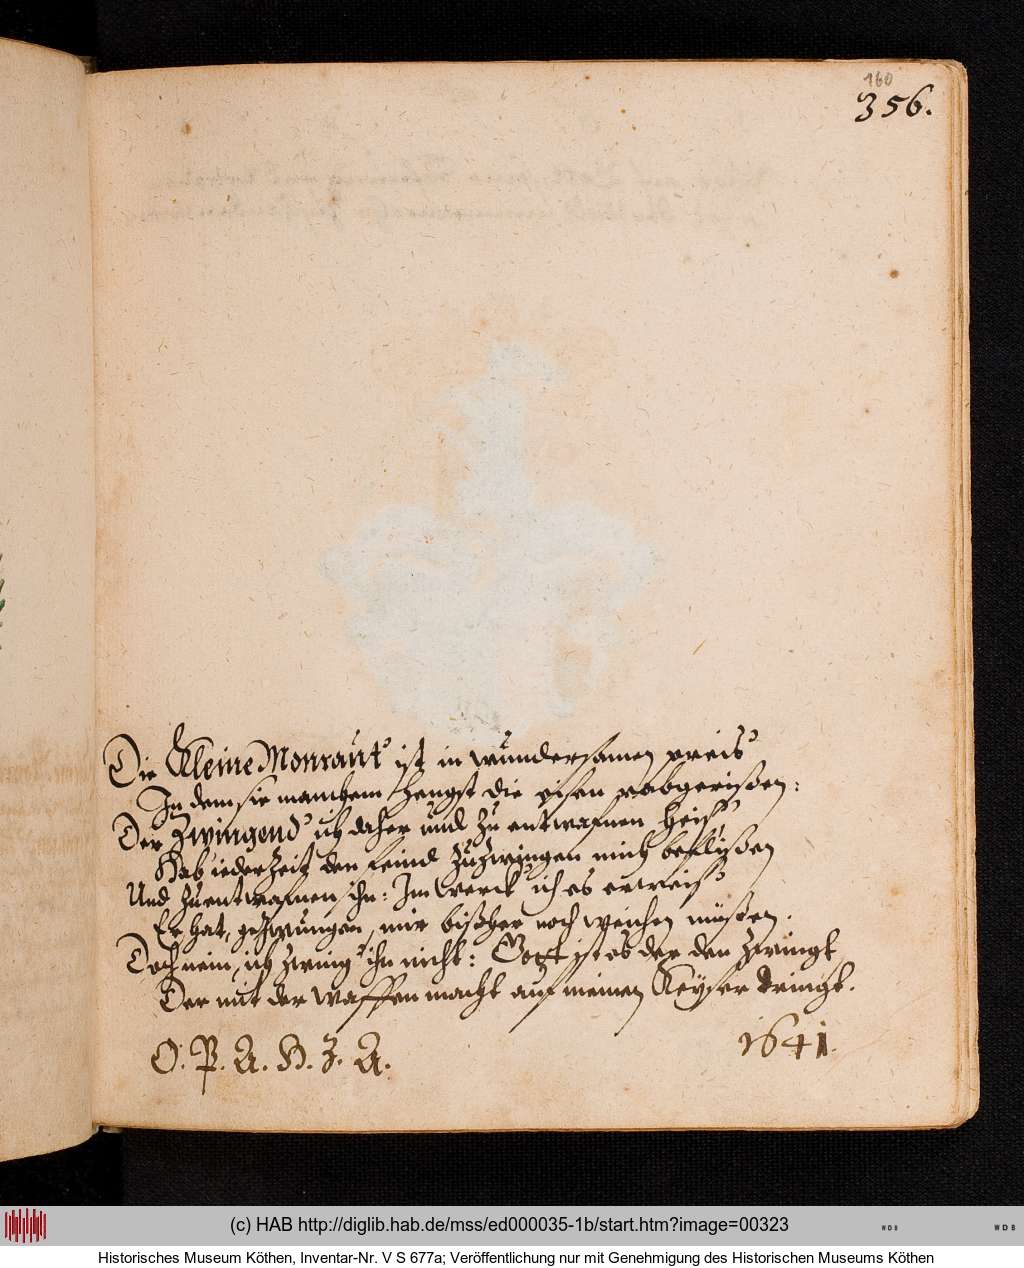 160
356.
Die Kleine Monraut ist in wundersamen preis
In dem sie manchem hengst die eisen vobgerißen:
Der Zwingend' ich daher und zu entwafnen heis'
Hab iederzeit den feind zu zwingen mich beflißen
Und zu entwafnen ihn: Im werck' ich es erweis'
Er hat, gezwungen, mir bißher noch weichen müßen.
Doch nein, ich zwing' ihn nicht: Gott ist es der den zwingt
Der mit der waffen macht auf meinen Keyser dringt.
O. P. A. H. Z. A. 1641.
(c) HAB http://diglib.hab.de/mss/ed000035-1b/start.htm?image=00323
WDB WDB
Historisches Museum Köthen, Inventar-Nr. V S 677a; Veröffentlichung nur mit Genehmigung des Historischen Museums Köthen